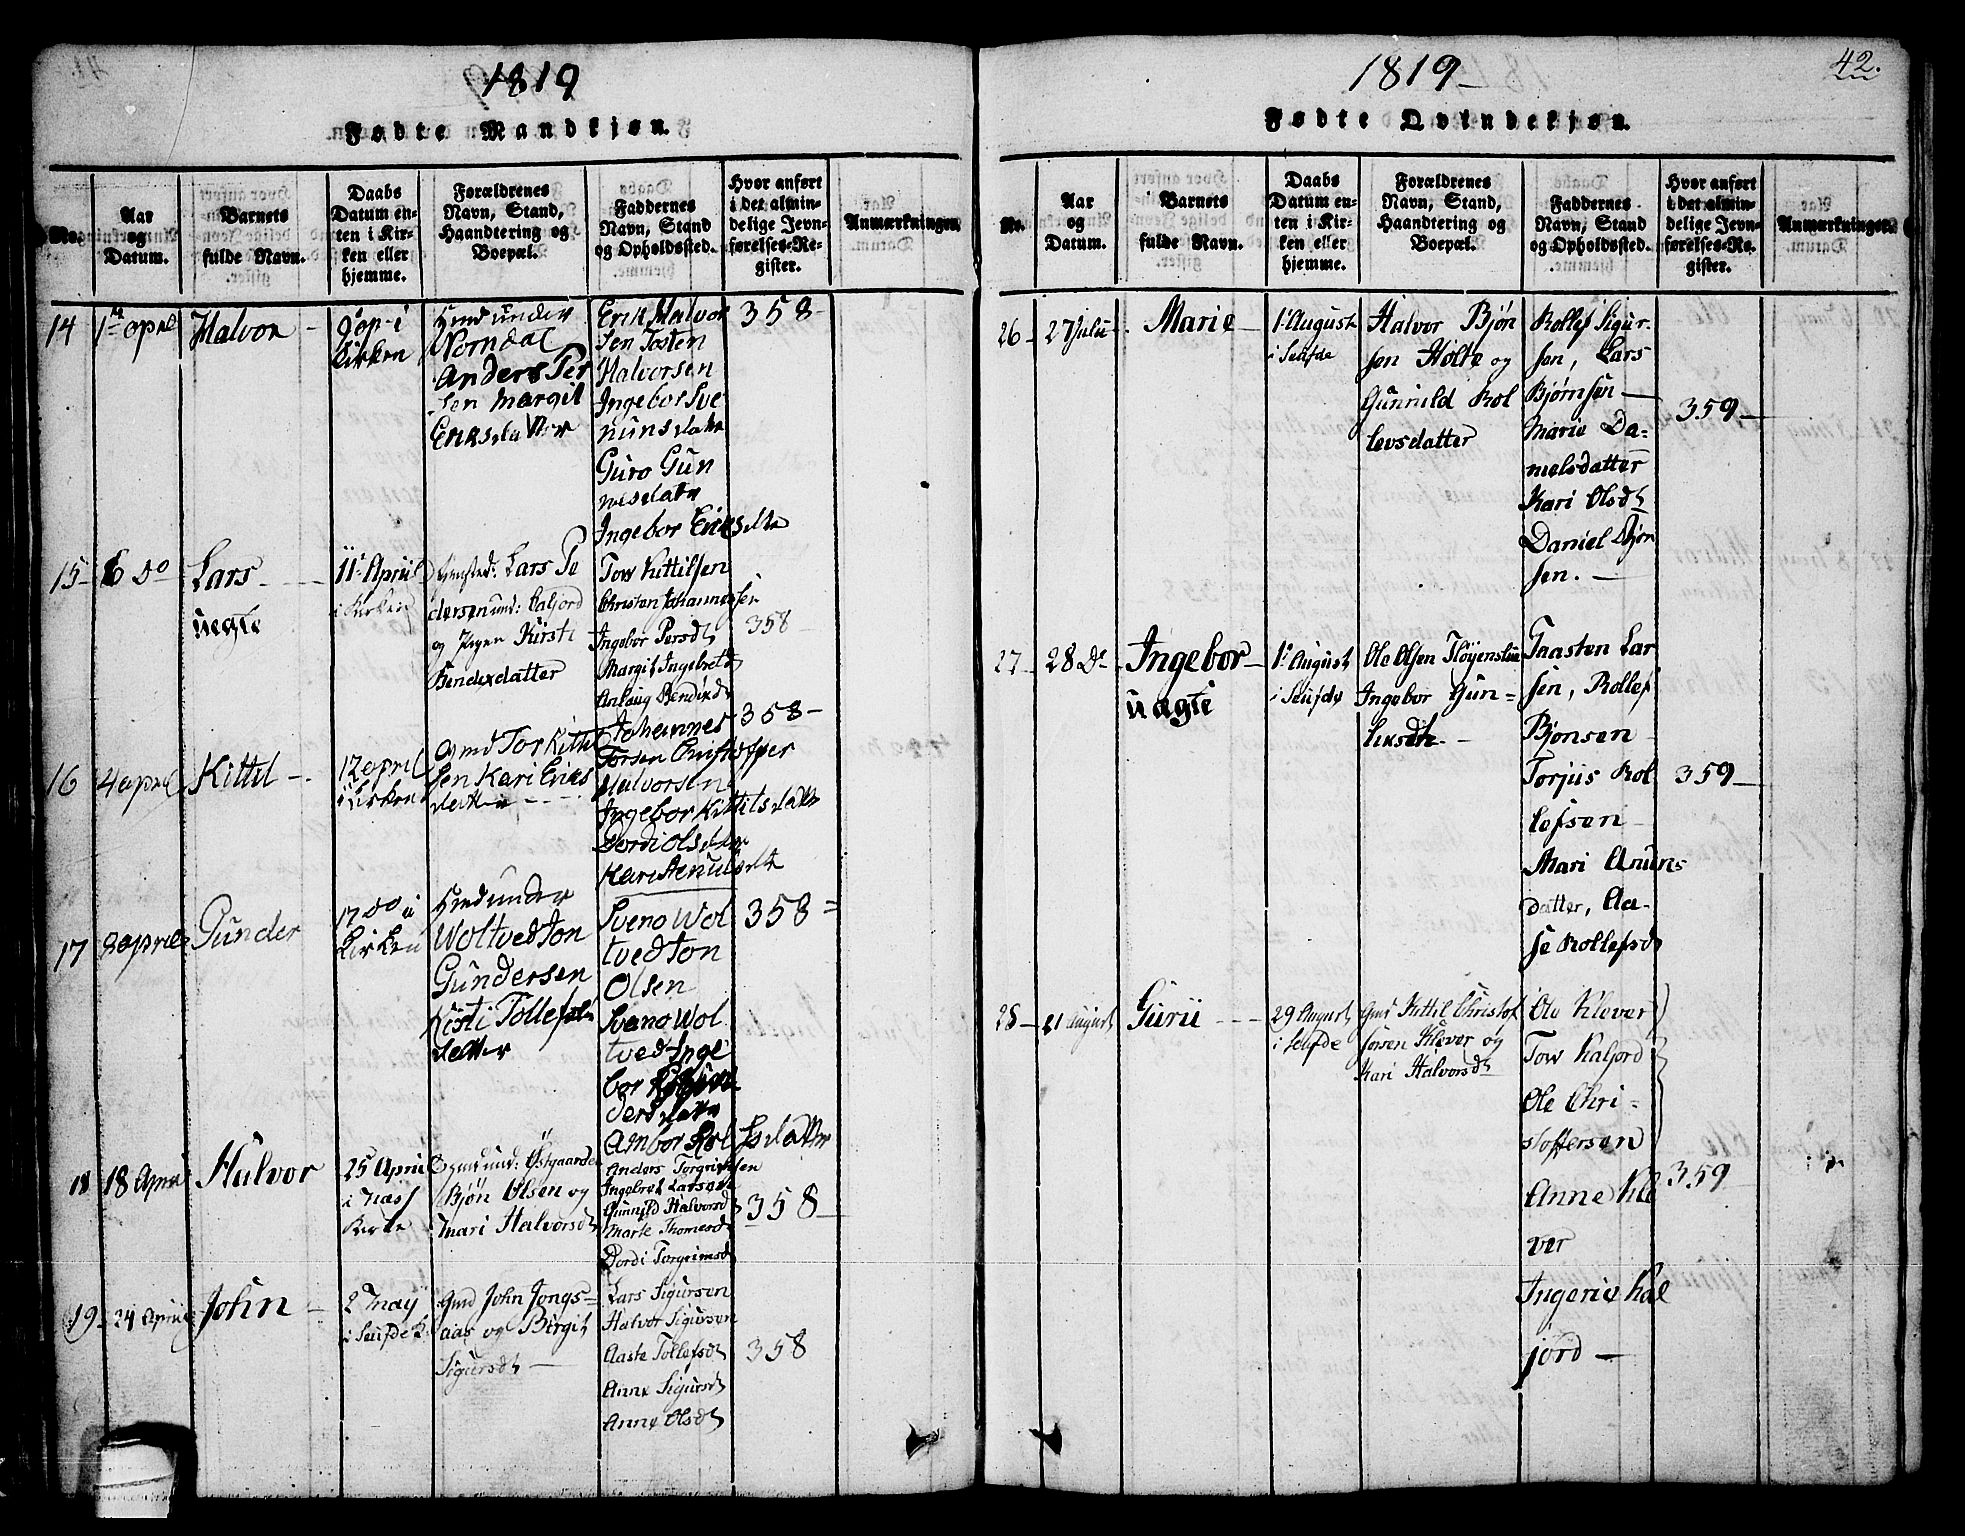 1819
Fødte Mandkjøn.
No.
Aar
og
Datum.
Barnets
fulde Navn.
Daabs
Datum en-
ten i Kir-
ken eller
hjemme.
Forældrenes
Navn, Stand,
Haandtering og
Boepæl.
Faddernes
Navn, Stand
og Opholdssted.
Hvor anført
i det almin-
delige Jevn-
førelses-Re-
gister.
Anmærkninger.
14
1 apr
Halvor
9 ap i
Kirken
Norndal
Anders Per
sen Margit
Eriksdatter
Erik Halvor
sen Tosten
Halvorsen
Ingebor Sve
nunsdatr
Guro Gun
Ingebor Eriksdtr
358
15
6 Do
Lars
uegte
11 April
i Kirken
Lars Pe
dersen und: Kaljord
og Pigen Kirsti
Bendixdatter
Tow Kittilsen
Christen Johannessen
Ingebor Persdt
Margit Ingebretdt
Anlaug Bendixdt
358
16
4 april
Kittil
12 april
i Kirken
Gmd Tor Kittel
sen Kari Eriks
datter
Johannes
Torsen Christoffer
Halvorsen
Ingebor Kittilsdattr
Dordi Olsdatter
358
17
8 april
Gunder
17 do i
Kirken
Woltved Jon
Gundersen
Kisti Tollefs
datter
Sveno Wol
tved Jon
Olsen
Sveno Wol
tved Inge
bor
Ambor Rolfsdattr
358
18
18 April
Halvor
25 April
i Næss
Kirke
Gmd und: Østgaarde
Bjøn Olsen og
Mari Halvorsdt
Anders Torgrimsen
Ingebret Larsen
Gunnild Halvorsdt
Marte Thomesdt
Dordi Torgrimsdt
358
19
24 April
John
2 May
i Seufde K.
Gmd John Jongs=
aas og Birgit
Sigursdt
Lars Sigursen
Halvor Sigursen
Aaste Tollefsdt
Anne Sigursdt
Anne Olsdt
358
1819
42.
Fødte Qvindekjøn.
No.
Aar
og
Datum.
Barnets
fulde Navn.
Daabs
Datum en-
ten i Kir-
ken eller
hjemme.
Forældrenes
Navn, Stand,
Haandtering og
Boepæl.
Faddernes
Navn, Stand
og Opholdssted.
Hvor anført
i det almin-
delige Jevn-
førelses-Re-
gister.
Anmærkninger.
26
27 Julii
Marie
1 August
i Seufde
Halvor Bjøn
sen Holte og
Gunnild Rol
levsdatter
Rollef Sigur-
sen, Lars
Bjørnsen
Marie Da=
nielsdatter
Kari Olsdt
Daniel Bjøn
sen.
359
27
28 Do
Ingebor
uægte
1 August
i Seufde
Ole Olsen Fløyenslie
Ingebor Gun=
Taasten Lar
sen, Rollef
Bjønsen
Torjus Rol
lofsen
Mari Anuns
datter, Aa-
se Rollefsdt
359
28
21 August
Guru
29 August
i Seufde
Gmd Kittil Christof
fersen Klever og
Kari Halvorsdt
Ole Klever
Tow Kaljord
Ole Chri-
stoffersen
Anne Kle
ver
Ingerie Kal
jord
359